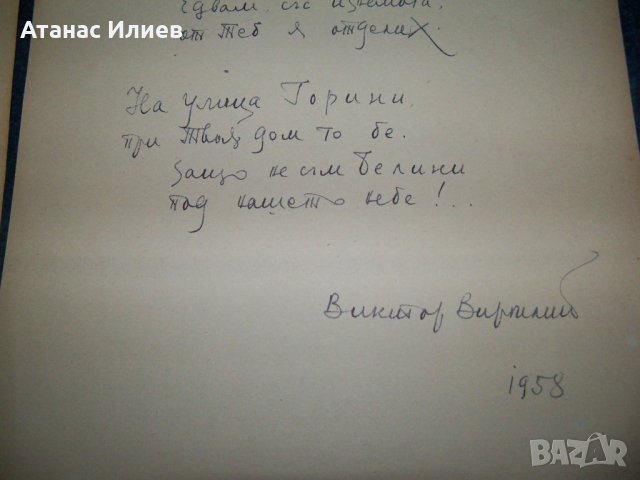 Атанас Илиев
Едвам, със измама,
от теб я отделих.
На улица Горини,
при твоя дом то бе.
Защо не съм Белини
под нашето небе!..
Виктор Виргилий
1958
BAZAR